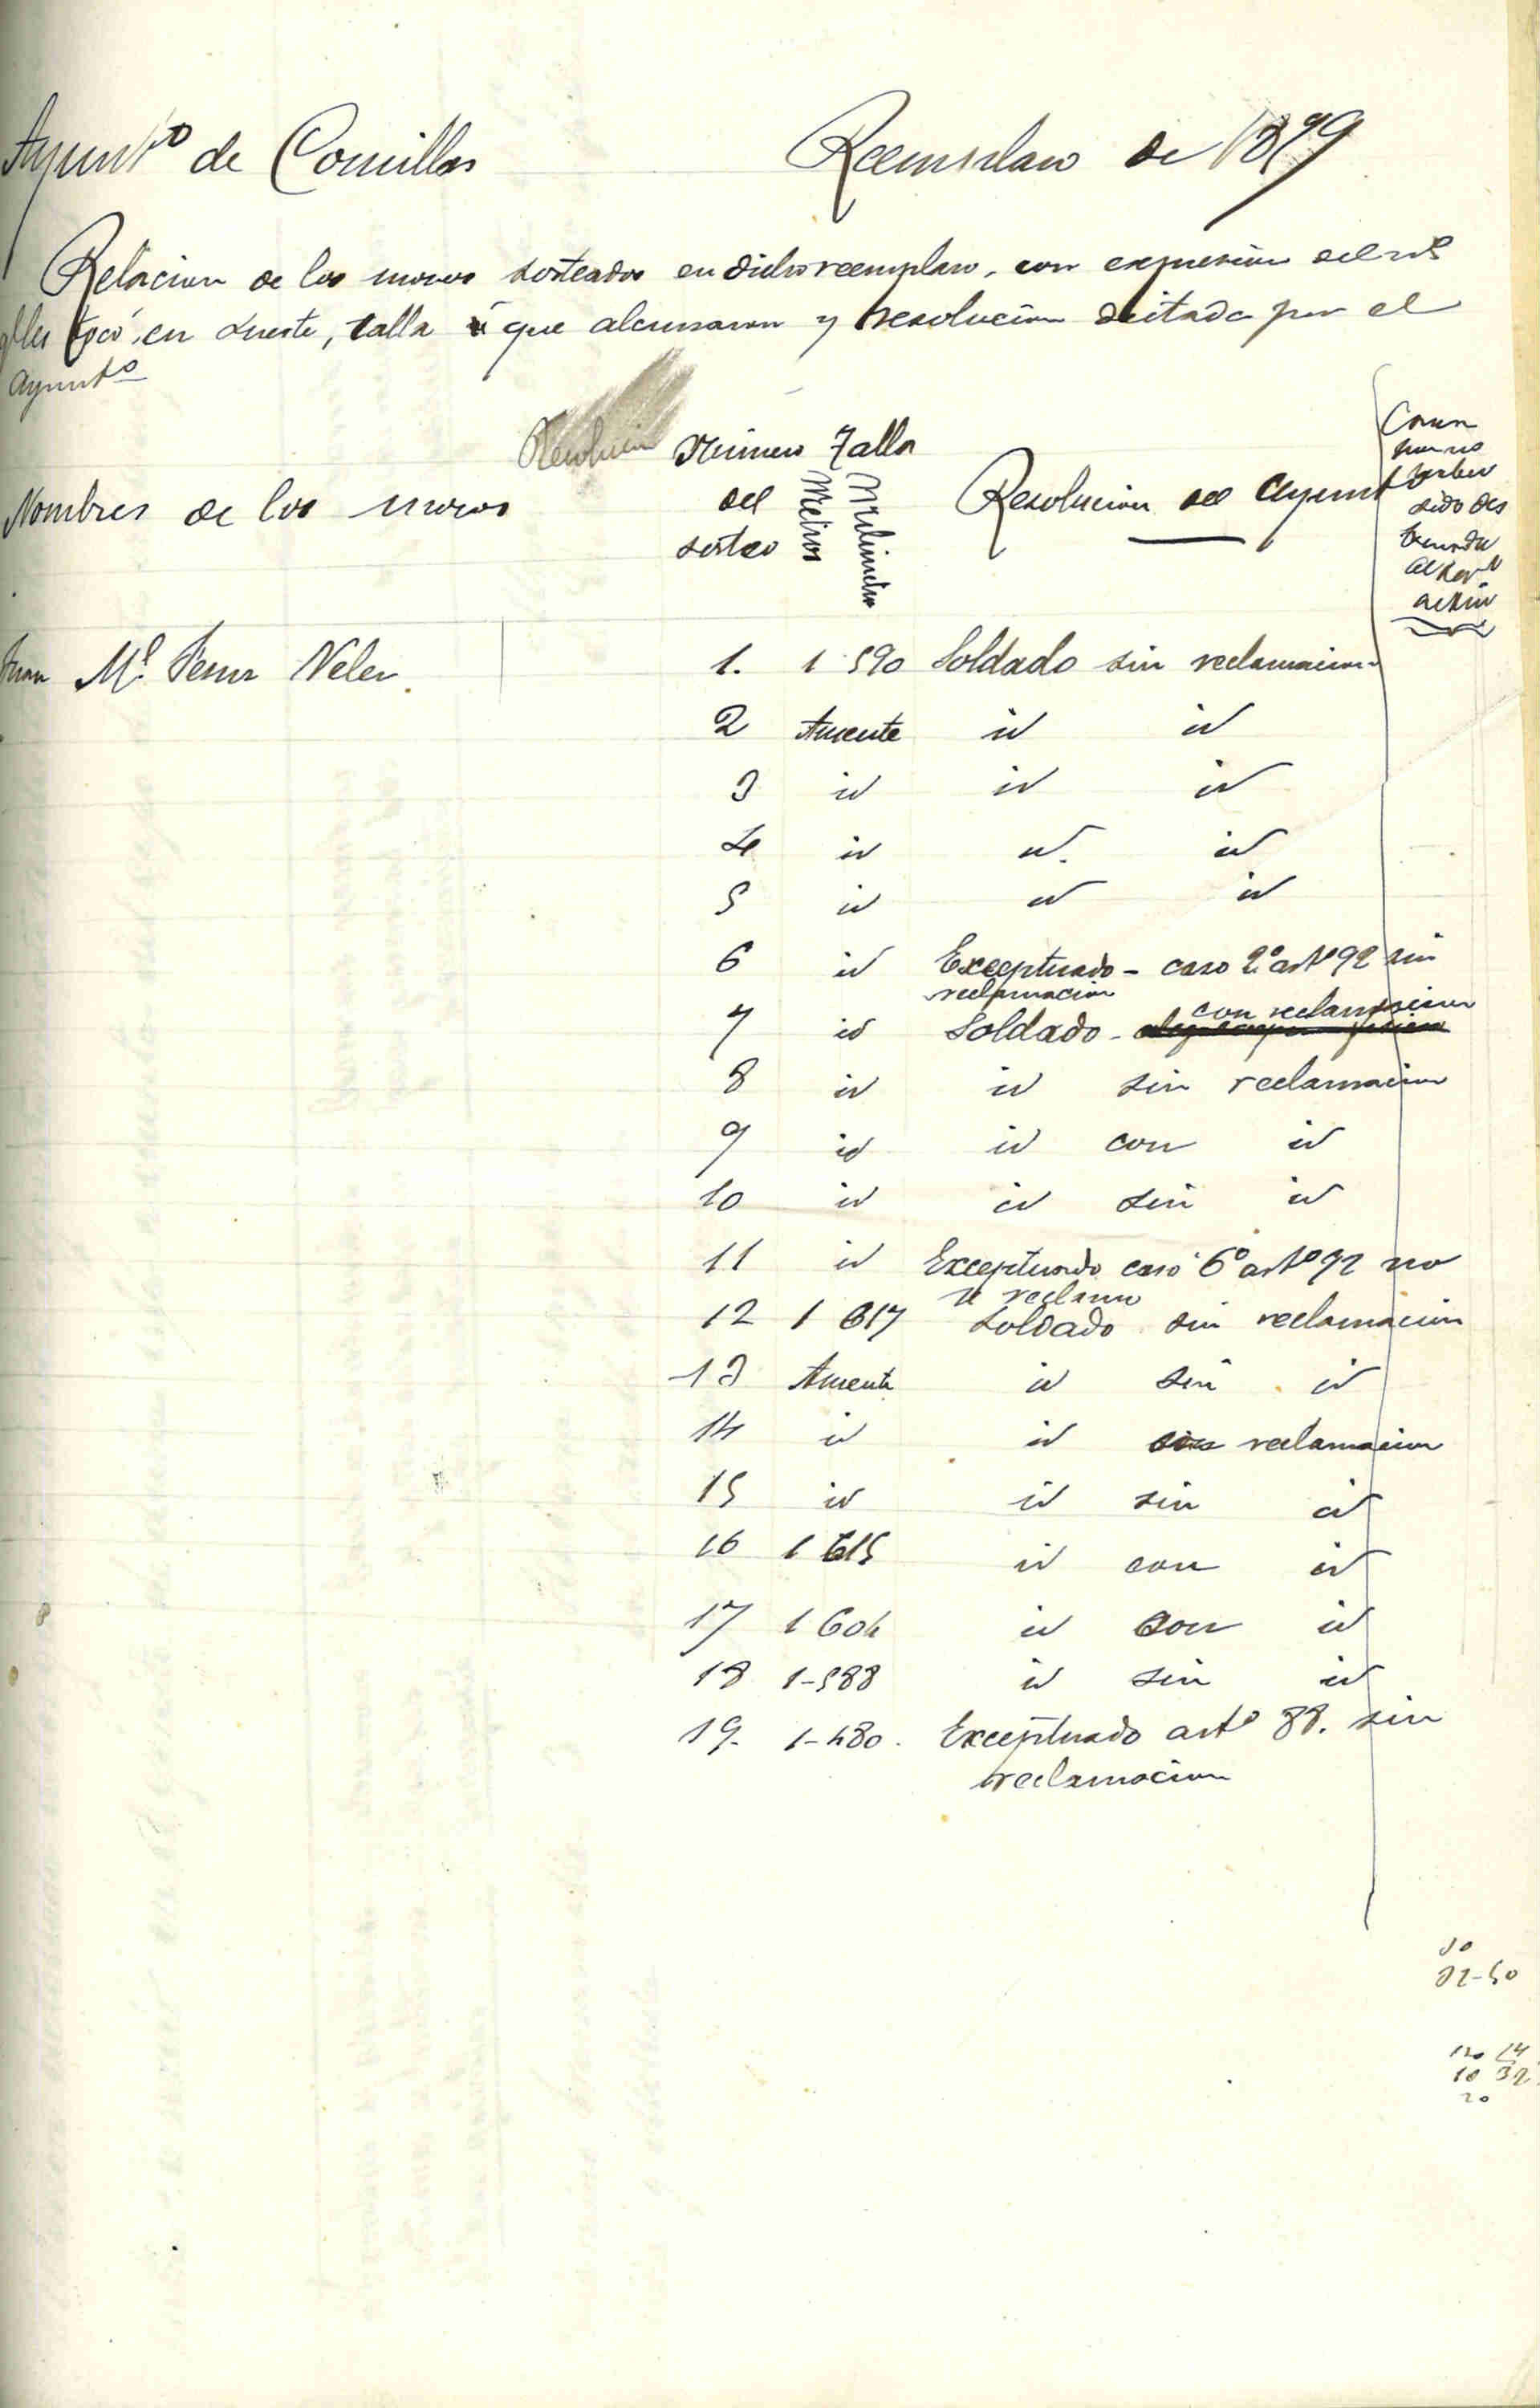 Ayuntº de Comillas
Reemplazo de 1879
Relacion de los mozos sorteados en dicho reemplazo, con expresión del nº
q. les tocó en suerte, talla que alcanzaron y resolución dictada por el
Ayuntº
Resolucion Número Talla
Nombres de los mozos
del
sorteo
Metros
Milimetros
Resolucion del Ayunt
haber
sido
Juan Mª
1. 1 590 Soldado sin reclamacion
2 Ausente id id
3 id id id
4 id id. id
5 id id id
6 id Exceptuado - caso 2º artº 92 sin
reclamacion
con reclamacion
7 id Soldado -
8 id id sin reclamacion
9 id id con id
10 id id sin id
11 id Exceptuado caso 6º artº 92 no
se reclamo
12 1 617 Soldado sin reclamacion
13 Ausente id sin id
14 id id reclamacion
15 id id sin id
16 1 615 id con id
17 1 604 id con id
18 1-588 id sin id
19. 1-480. Exceptuado artº 88. sin
reclamacion